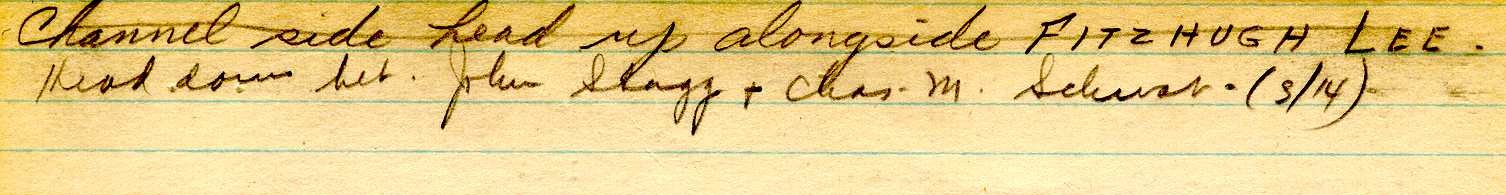 Channel side head up alongside FITZHUGH LEE.
Head down bet. John Stagg + Chas. M. - (3/14)